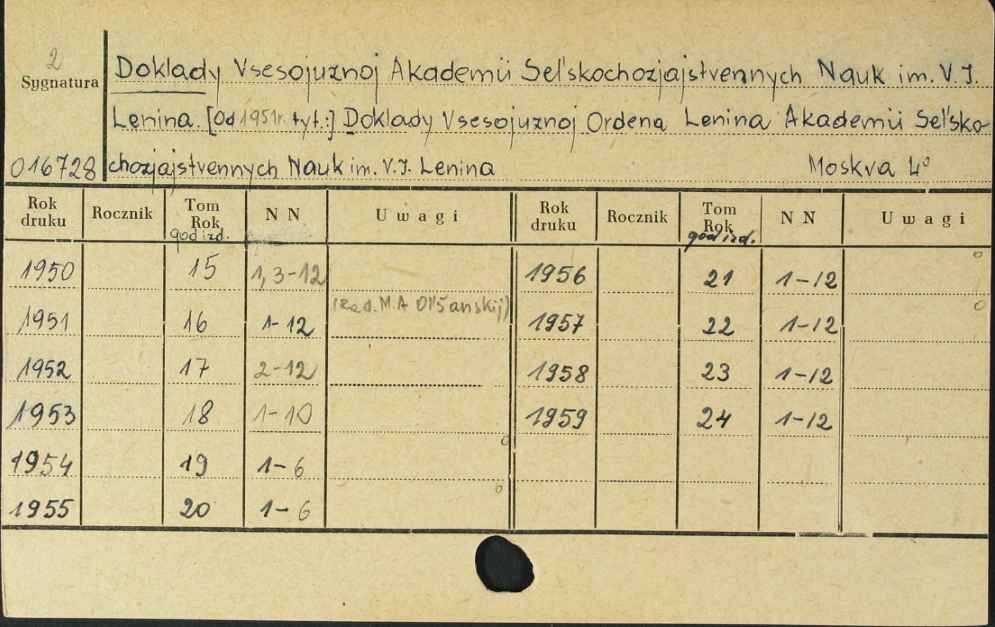 2
Sygnatura
016728
Doklady Vsesojuznoj Akademii Sel'skochozjajstvennych Nauk im. V. I.
Lenina. [Od 1951 r. tyt.:] Doklady Vsesojuznoj Ordena Lenina Akademii Sel'sko-
chozjajstvennych Nauk im. V. I. Lenina Moskva 4°
Rok druku Rocznik Tom Rok god izd. NN Uwagi Rok druku Rocznik Tom Rok god izd. NN Uwagi
1950 15 1, 3-12 1956 21 1-12
1951 16 1-12 (red. M. A Ol'šanskij) 1957 22 1-12
1952 17 2-12 1958 23 1-12
1953 18 1-10 1959 24 1-12
1954 19 1-6
1955 20 1-6